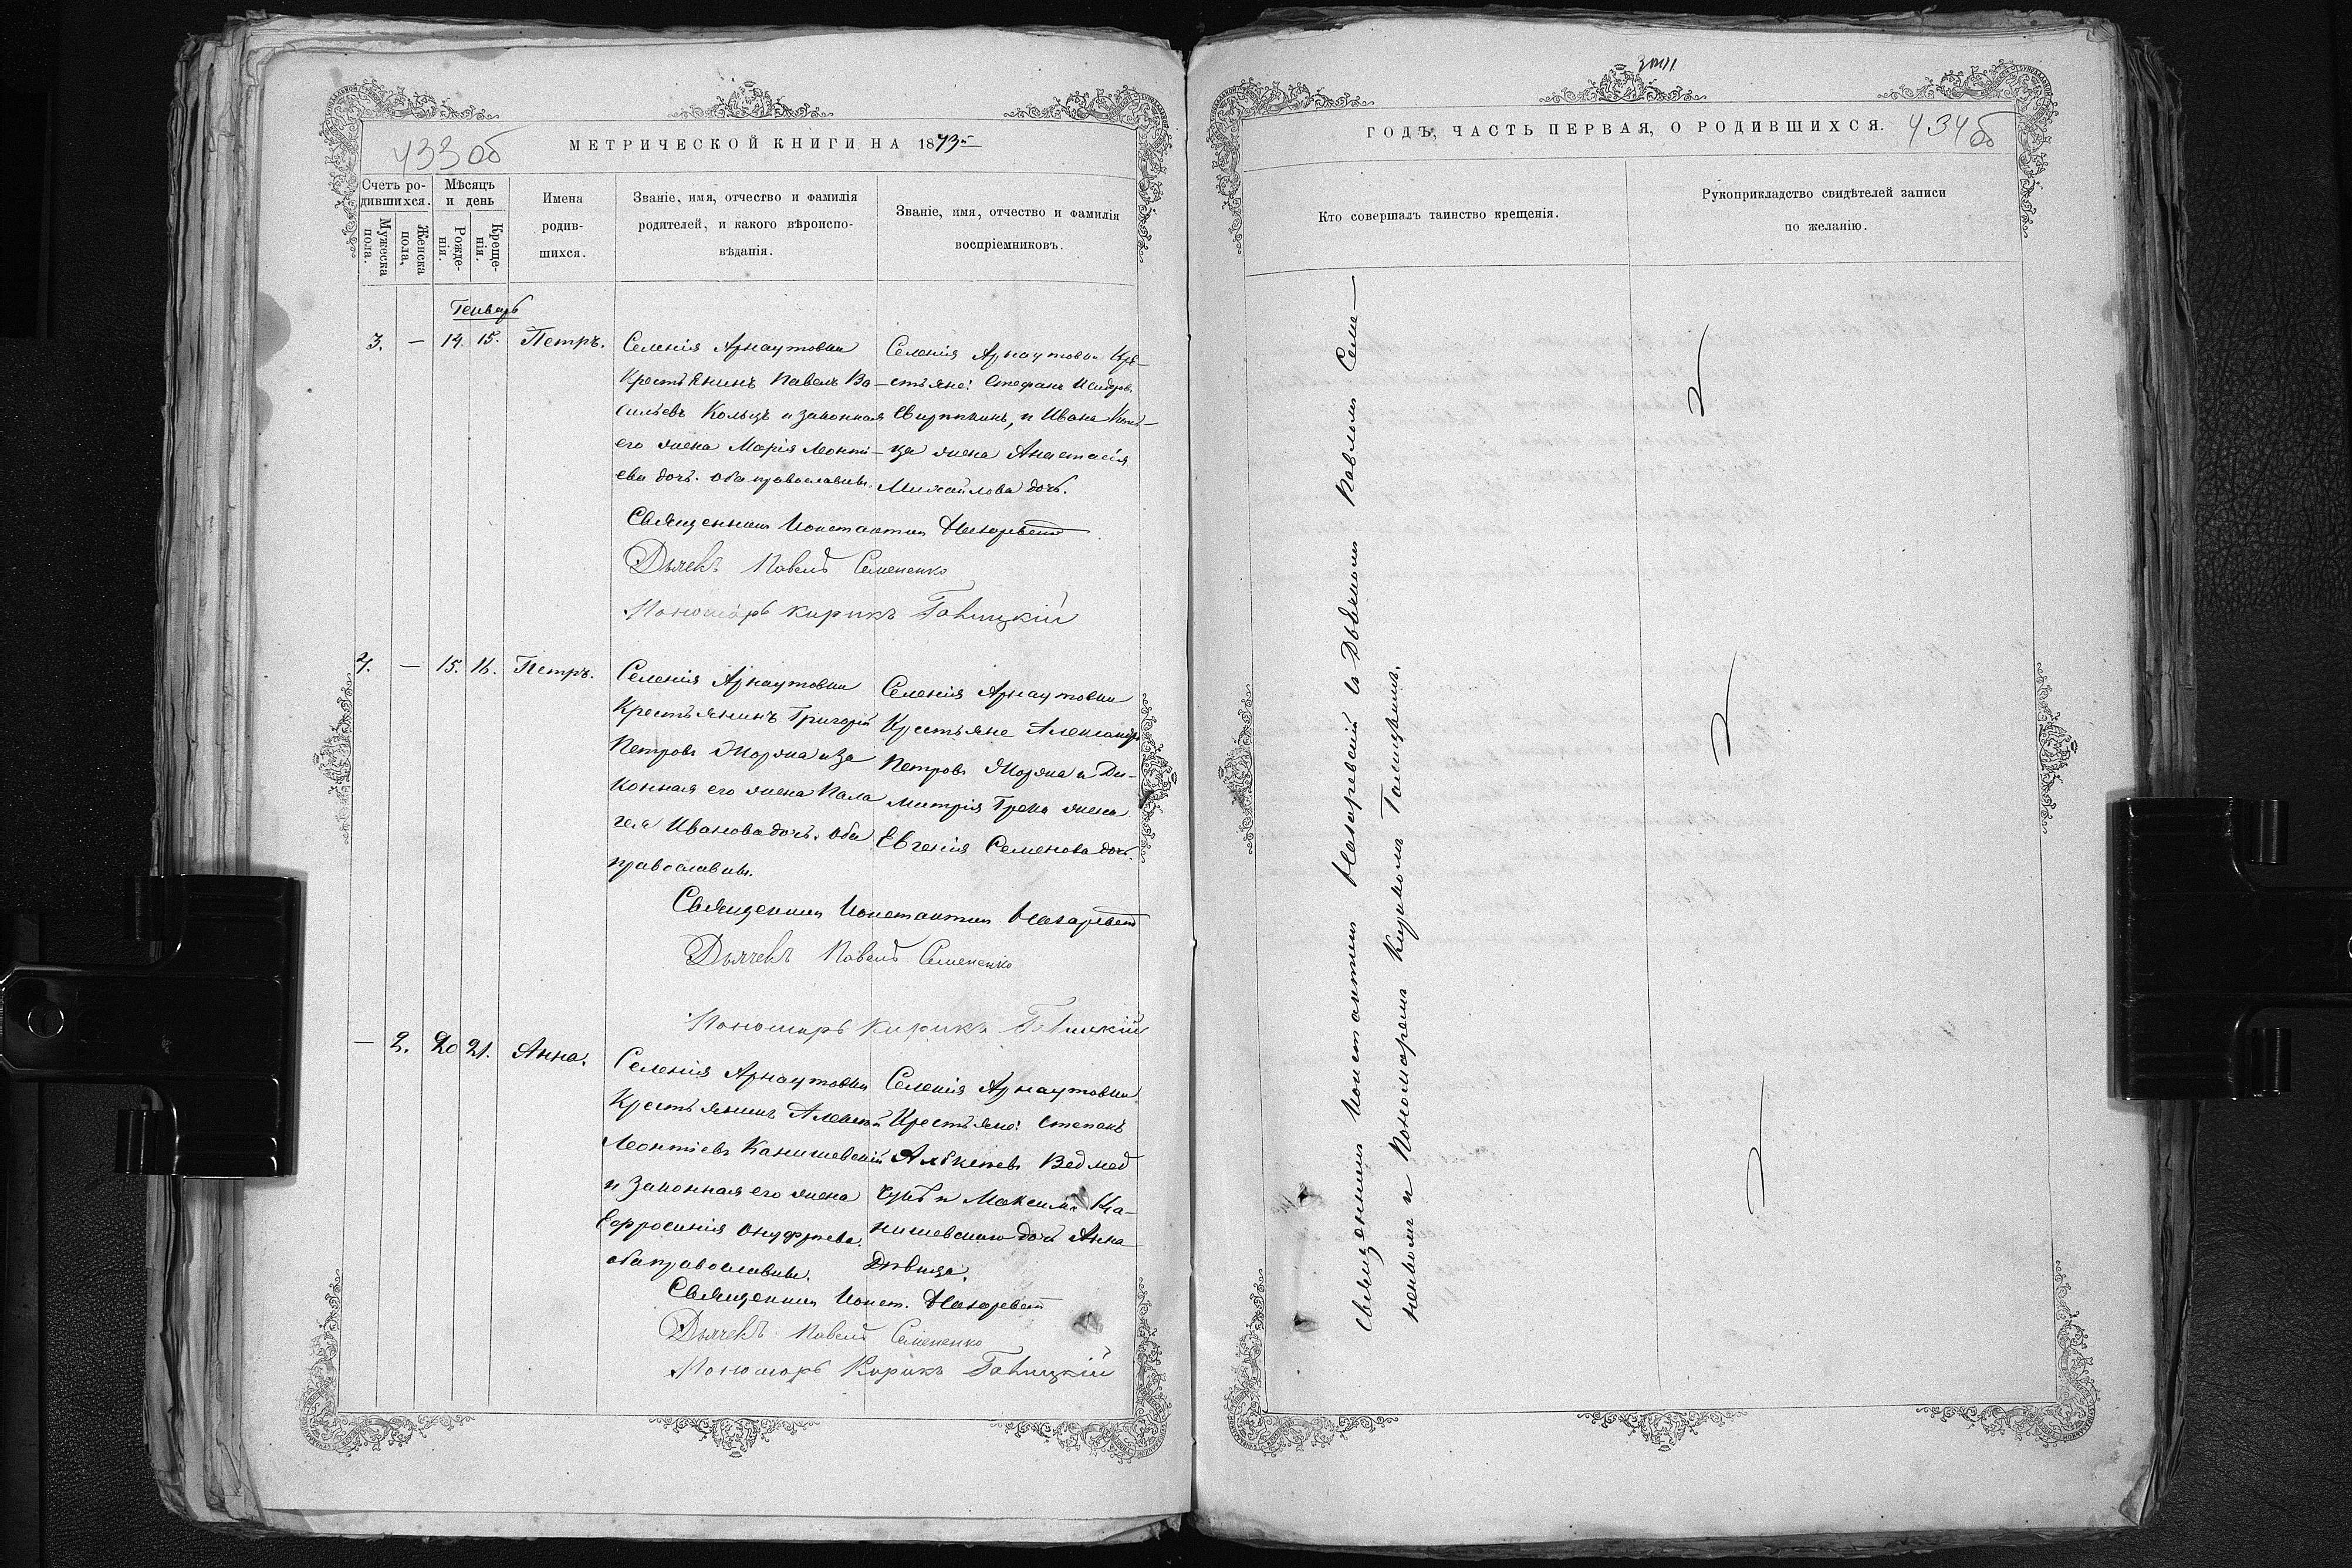 433 об
МЕТРИЧЕСКОЙ КНИГИ НА 1873й
Счетъ ро-
дившихся.
Мужеска
пола.
Женска
пола.
Мѣсяцъ
и день
Рожде-
нія.
Креще-
нія.
Имена
родив-
шихся.
Званіе, имя, отчество и фамилія
родителей, и какого вѣроиспо-
вѣданія.
Званіе, имя, отчество и фамилія
воспріемниковъ.
Генварь
3. — 14. 15. Петръ.
Селенія Арнаутовки
Крестьянинъ Павелъ Ва-
сильевъ Кольцъ и законная
его жена Марія Леонтi-
ева дочь. оба православны.
Селенія Арнаутовки Кре-
стьяне: Стефанъ
и Ивана
жена Анастасія
Михайлова дочь.
Священникъ Константинъ Назаревскій
Дьячекъ Павелъ Семененко
Пономарь Кирикъ Галицкій
4. — 15. 16. Петръ.
Селенія Арнаутовки
Крестьянинъ Григорій
Петровъ Жоржа и за
конная его жена Пала
гея Иванова дочь. оба
православны.
Селенія Арнаутовки
Крестьяне Александръ
Петровъ Жоржа и Ди-
митрія Грека жена
Евгенія Семенова дочь.
Священникъ Константинъ Назаревскій
Дьячекъ Павелъ Семененко
Пономарь Кирикъ Галицкій
— 2. 20 21. Анна.
Селенія Арнаутовки
Крестьянинъ Алексѣй
Леонтіевъ Канишевскій
и законная его жена
Евфросинія Онуфріева.
оба православны.
Селенія Арнаутовки
Крестьяне: Степанъ
Ведмед
и Максима Ка-
нишевскаго дочь Анна
Дѣвица.
Священникъ Конст. Назаревскій
Дьячекъ Павелъ Семененко
Пономарь Кирикъ Галицкій
ГОДЪ, ЧАСТЬ ПЕРВАЯ, О РОДИВШИХСЯ.
434 об
Кто совершалъ таинство крещенія.
Рукоприкладство свидѣтелей записи
по желанію.
Священникъ Константинъ Назаревскій съ Дьячкомъ Павломъ Семе-
ненкомъ и Пономаремъ Галицкимъ.